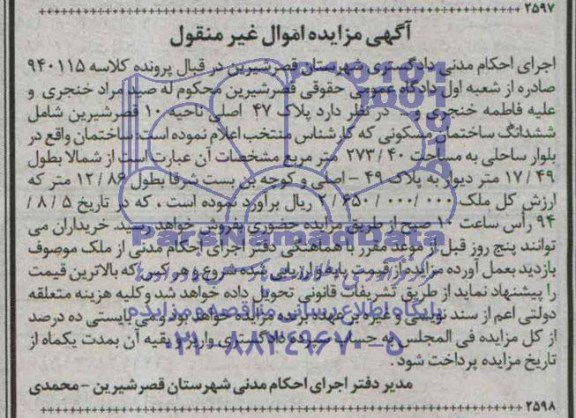 ۲۵۹۷
آگهی مزایده اموال غیر منقول
اجرای احکام مدنی دادگستری شهرستان قصرشیرین در قبال پرونده کلاسه ۹۴۰۱۱۵
صادره از شعبه اول دادگاه عمومی حقوقی قصرشیرین محکوم له صید مراد خنجری و
علیه فاطمه خنجری و در نظر دارد پلاک ۴۷ اصلی ناحیه ۱۰ قصرشیرین شامل
ششدانگ ساختمان مسکونی که کارشناس منتخب اعلام نموده است: ساختمان واقع در
بلوار ساحلی به مساحت ۲۷۳/۴۰ متر مربع مشخصات آن عبارت است از شمالا بطول
۱۷/۴۹ متر دیوار به پلاک ۴۹ - اصلی و کوچه بن بست شرقا بطول ۱۲/۸۶ متر که
ارزش کل ملک ۲/۶۵۰/۰۰۰/۰۰۰ ریال برآورد نموده است ، که در تاریخ ۵ / ۸ /
۹۴ رأس ساعت ۱۰ صبح از طریق مزایده حضوری بفروش خواهد رسید. خریداران می
توانند پنج روز قبل از موعد مقرر با هماهنگی دفتر اجرای احکام مدنی از ملک موصوف
بازدید بعمل آورده مزایده از قیمت پایه ارزیابی شده شروع و هر کس که بالاترین قیمت
را پیشنهاد نماید از طریق تشریفات قانونی تحویل داده خواهد شد وکلیه هزینه متعلقه
دولتی اعم از سند نویسی و غیره بر عهده برنده مزایده خواهد بود و می بایستی ده درصد
از کل مزایده فی المجلس به حساب سپرده دادگستری واریز و بقیه آن بمدت یکماه از
تاریخ مزایده پرداخت شود .
مدیر دفتر اجرای احکام مدنی شهرستان قصرشیرین - محمدی
۲۵۹۸
ParsNamadData
پایگاه اطلاع رسانی مناقصه و مزایده
۰۲۱-۸۸۳۴۹۶۷۰-۵